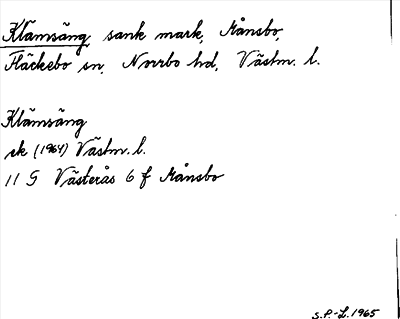 Klämsäng, sank mark, Månsbo,
Fläckebo sn, Norrbo hd, Västm. l.
Klämsäng
ek (1964) Västm. l.
11 G Västerås 6 f Månsbo
S.P.-L. 1965